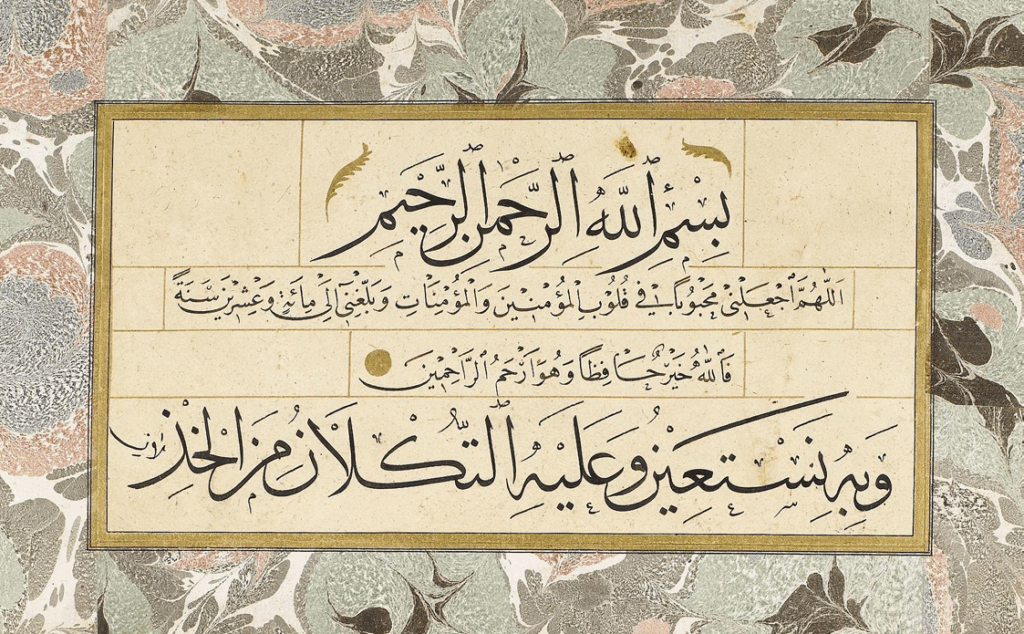 بِسْمِ اللَّهِ الرَّحْمٰنِ الرَّحِيمِ
اَللّٰهُمَّ اجْعَلْنِي مَحْبُوبًا فِي قُلُوبِ الْمُؤْمِنِينَ وَالْمُؤْمِنَاتِ وَبَلِّغْنِي اِلَى مِائَةٍ وَعِشْرِينَ سَنَةً
فَاللّٰهُ خَيْرٌ حَافِظًا وَهُوَ اَرْحَمُ الرَّاحِمِينَ
وَبِهِ نَسْتَعِينُ وَعَلَيْهِ التُّكْلَانُ مِنَ